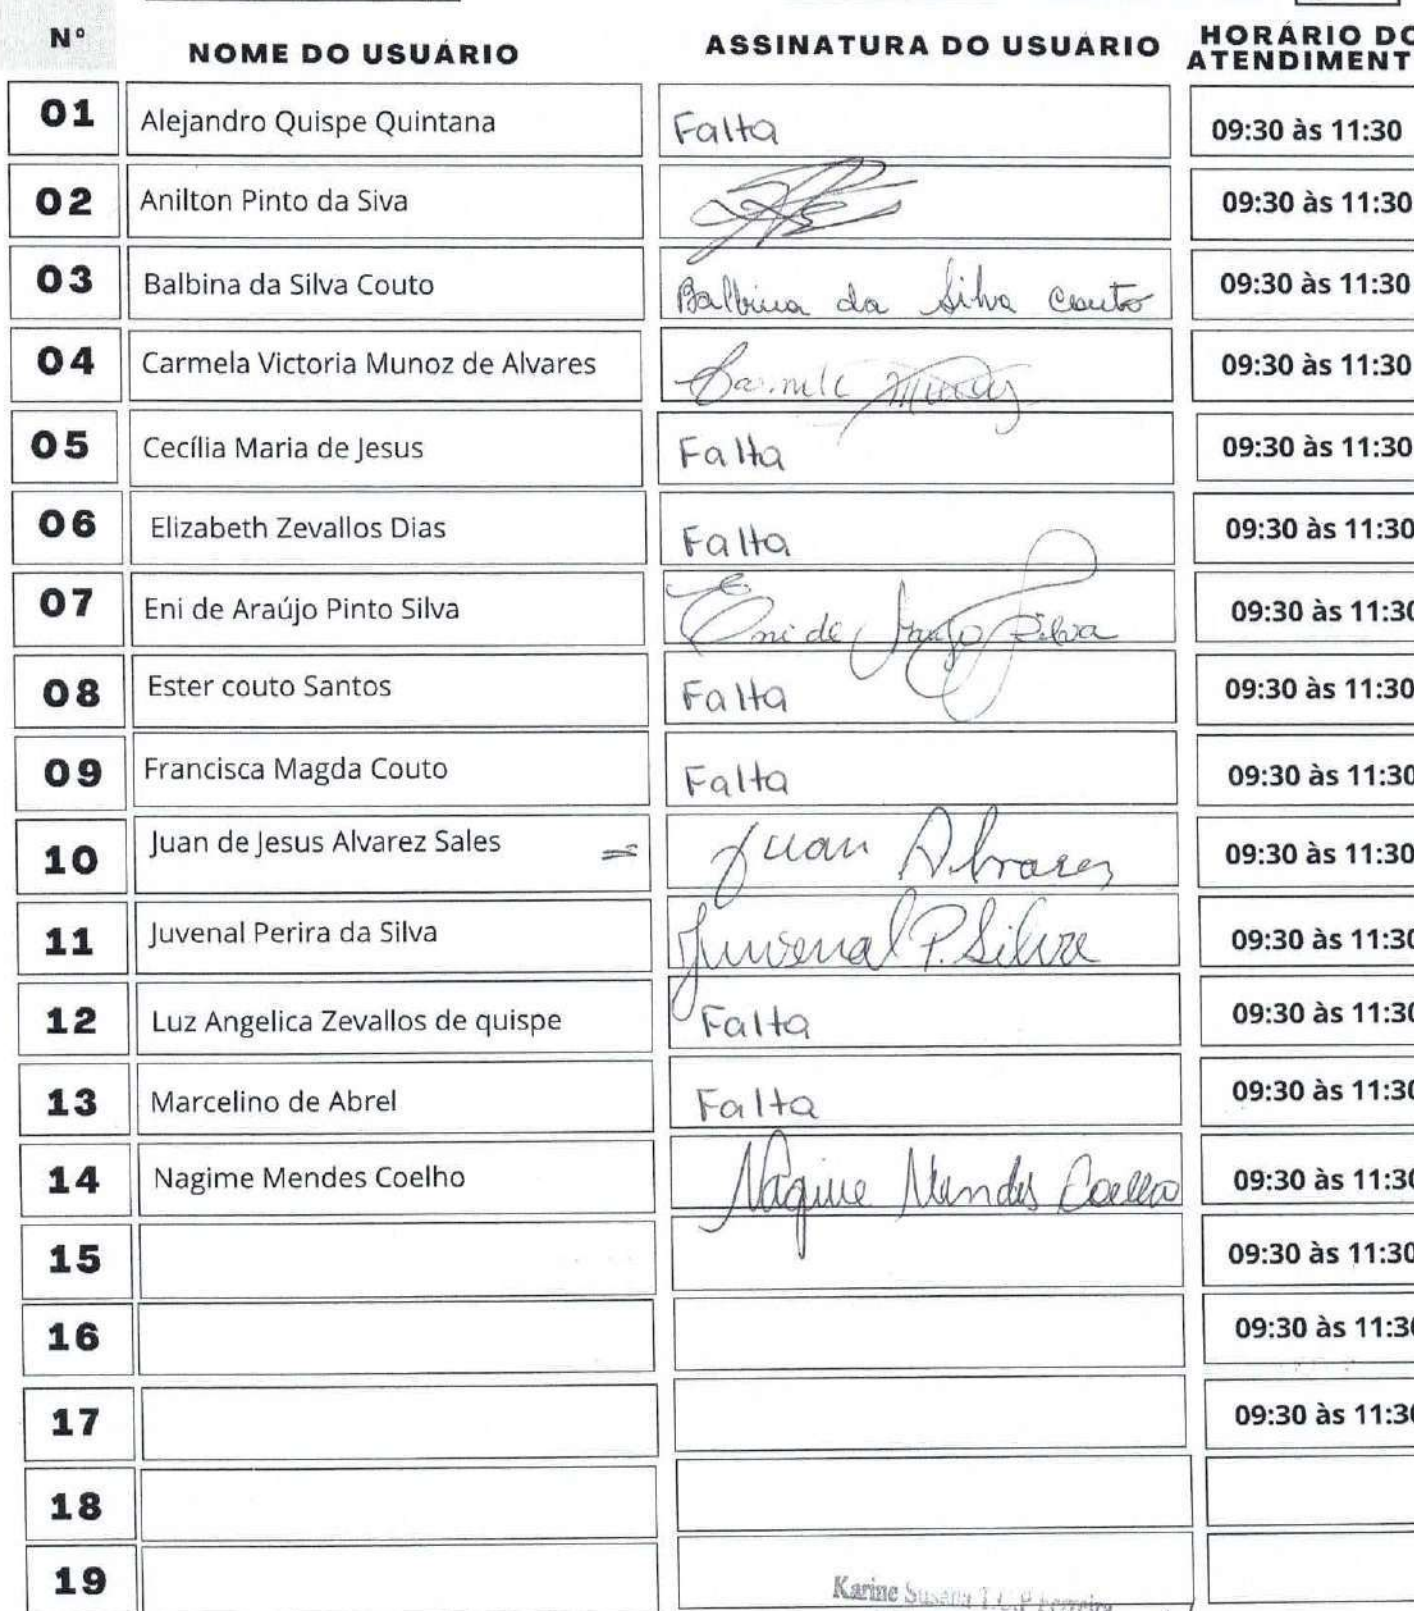 Nº NOME DO USUÁRIO ASSINATURA DO USUÁRIO HORÁRIO DO
ATENDIMENT
01 Alejandro Quispe Quintana Falta 09:30 às 11:30
02 Anilton Pinto da Siva 09:30 às 11:30
03 Balbina da Silva Couto Balbina da Silva Couto 09:30 às 11:30
04 Carmela Victoria Munoz de Alvares Carmela Munoz 09:30 às 11:30
05 Cecília Maria de Jesus Falta 09:30 às 11:30
06 Elizabeth Zevallos Dias Falta 09:30 às 11:30
07 Eni de Araújo Pinto Silva Eni de Araujo Silva 09:30 às 11:30
08 Ester couto Santos Falta 09:30 às 11:30
09 Francisca Magda Couto Falta 09:30 às 11:30
10 Juan de Jesus Alvarez Sales Juan Alvarez 09:30 às 11:30
11 Juvenal Perira da Silva Juvenal P. Silva 09:30 às 11:30
12 Luz Angelica Zevallos de quispe Falta 09:30 às 11:30
13 Marcelino de Abrel Falta 09:30 às 11:30
14 Nagime Mendes Coelho Nagime Mendes Coelho 09:30 às 11:30
15 09:30 às 11:30
16 09:30 às 11:30
17 09:30 às 11:30
18
19 Karine Susana